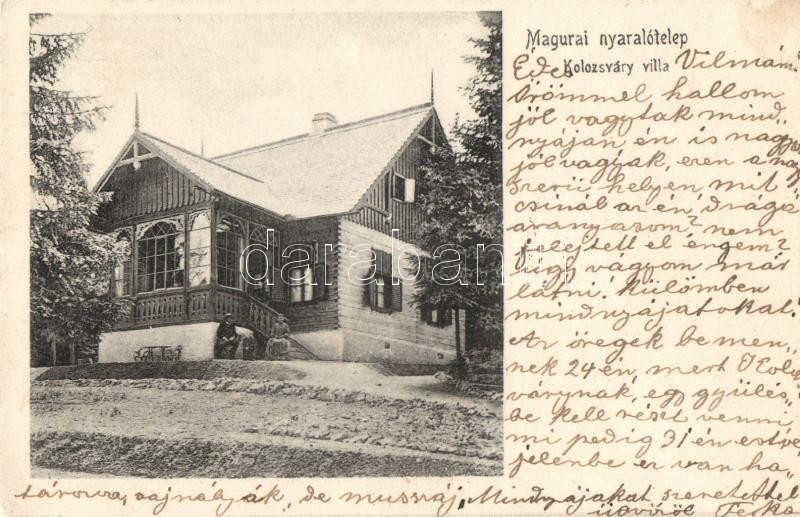 Magurai nyaralótelep
Kolozsváry villa
Édes Vilmám.
Örömmel hallom
jól vagytak mind,
nyáján én is nagy
jól vagyok, ezen a na
szerü helyen, mit
csinál az én drága
aranyasom? nem
felejtett el engem?
úgy vágyom már
látni! Külömben
mindnyájatokat.
Az öregek bemen,
nek 24 én, mert Kolozs
várynak, egy gyülés,
be kell részt venni
mi pedig 31 én estve
jelenbe ez van ha,
tározva, sajnálják, de muszaj, Mindnyájakat szeretettel
üdvözöl Ferkó
darabanth